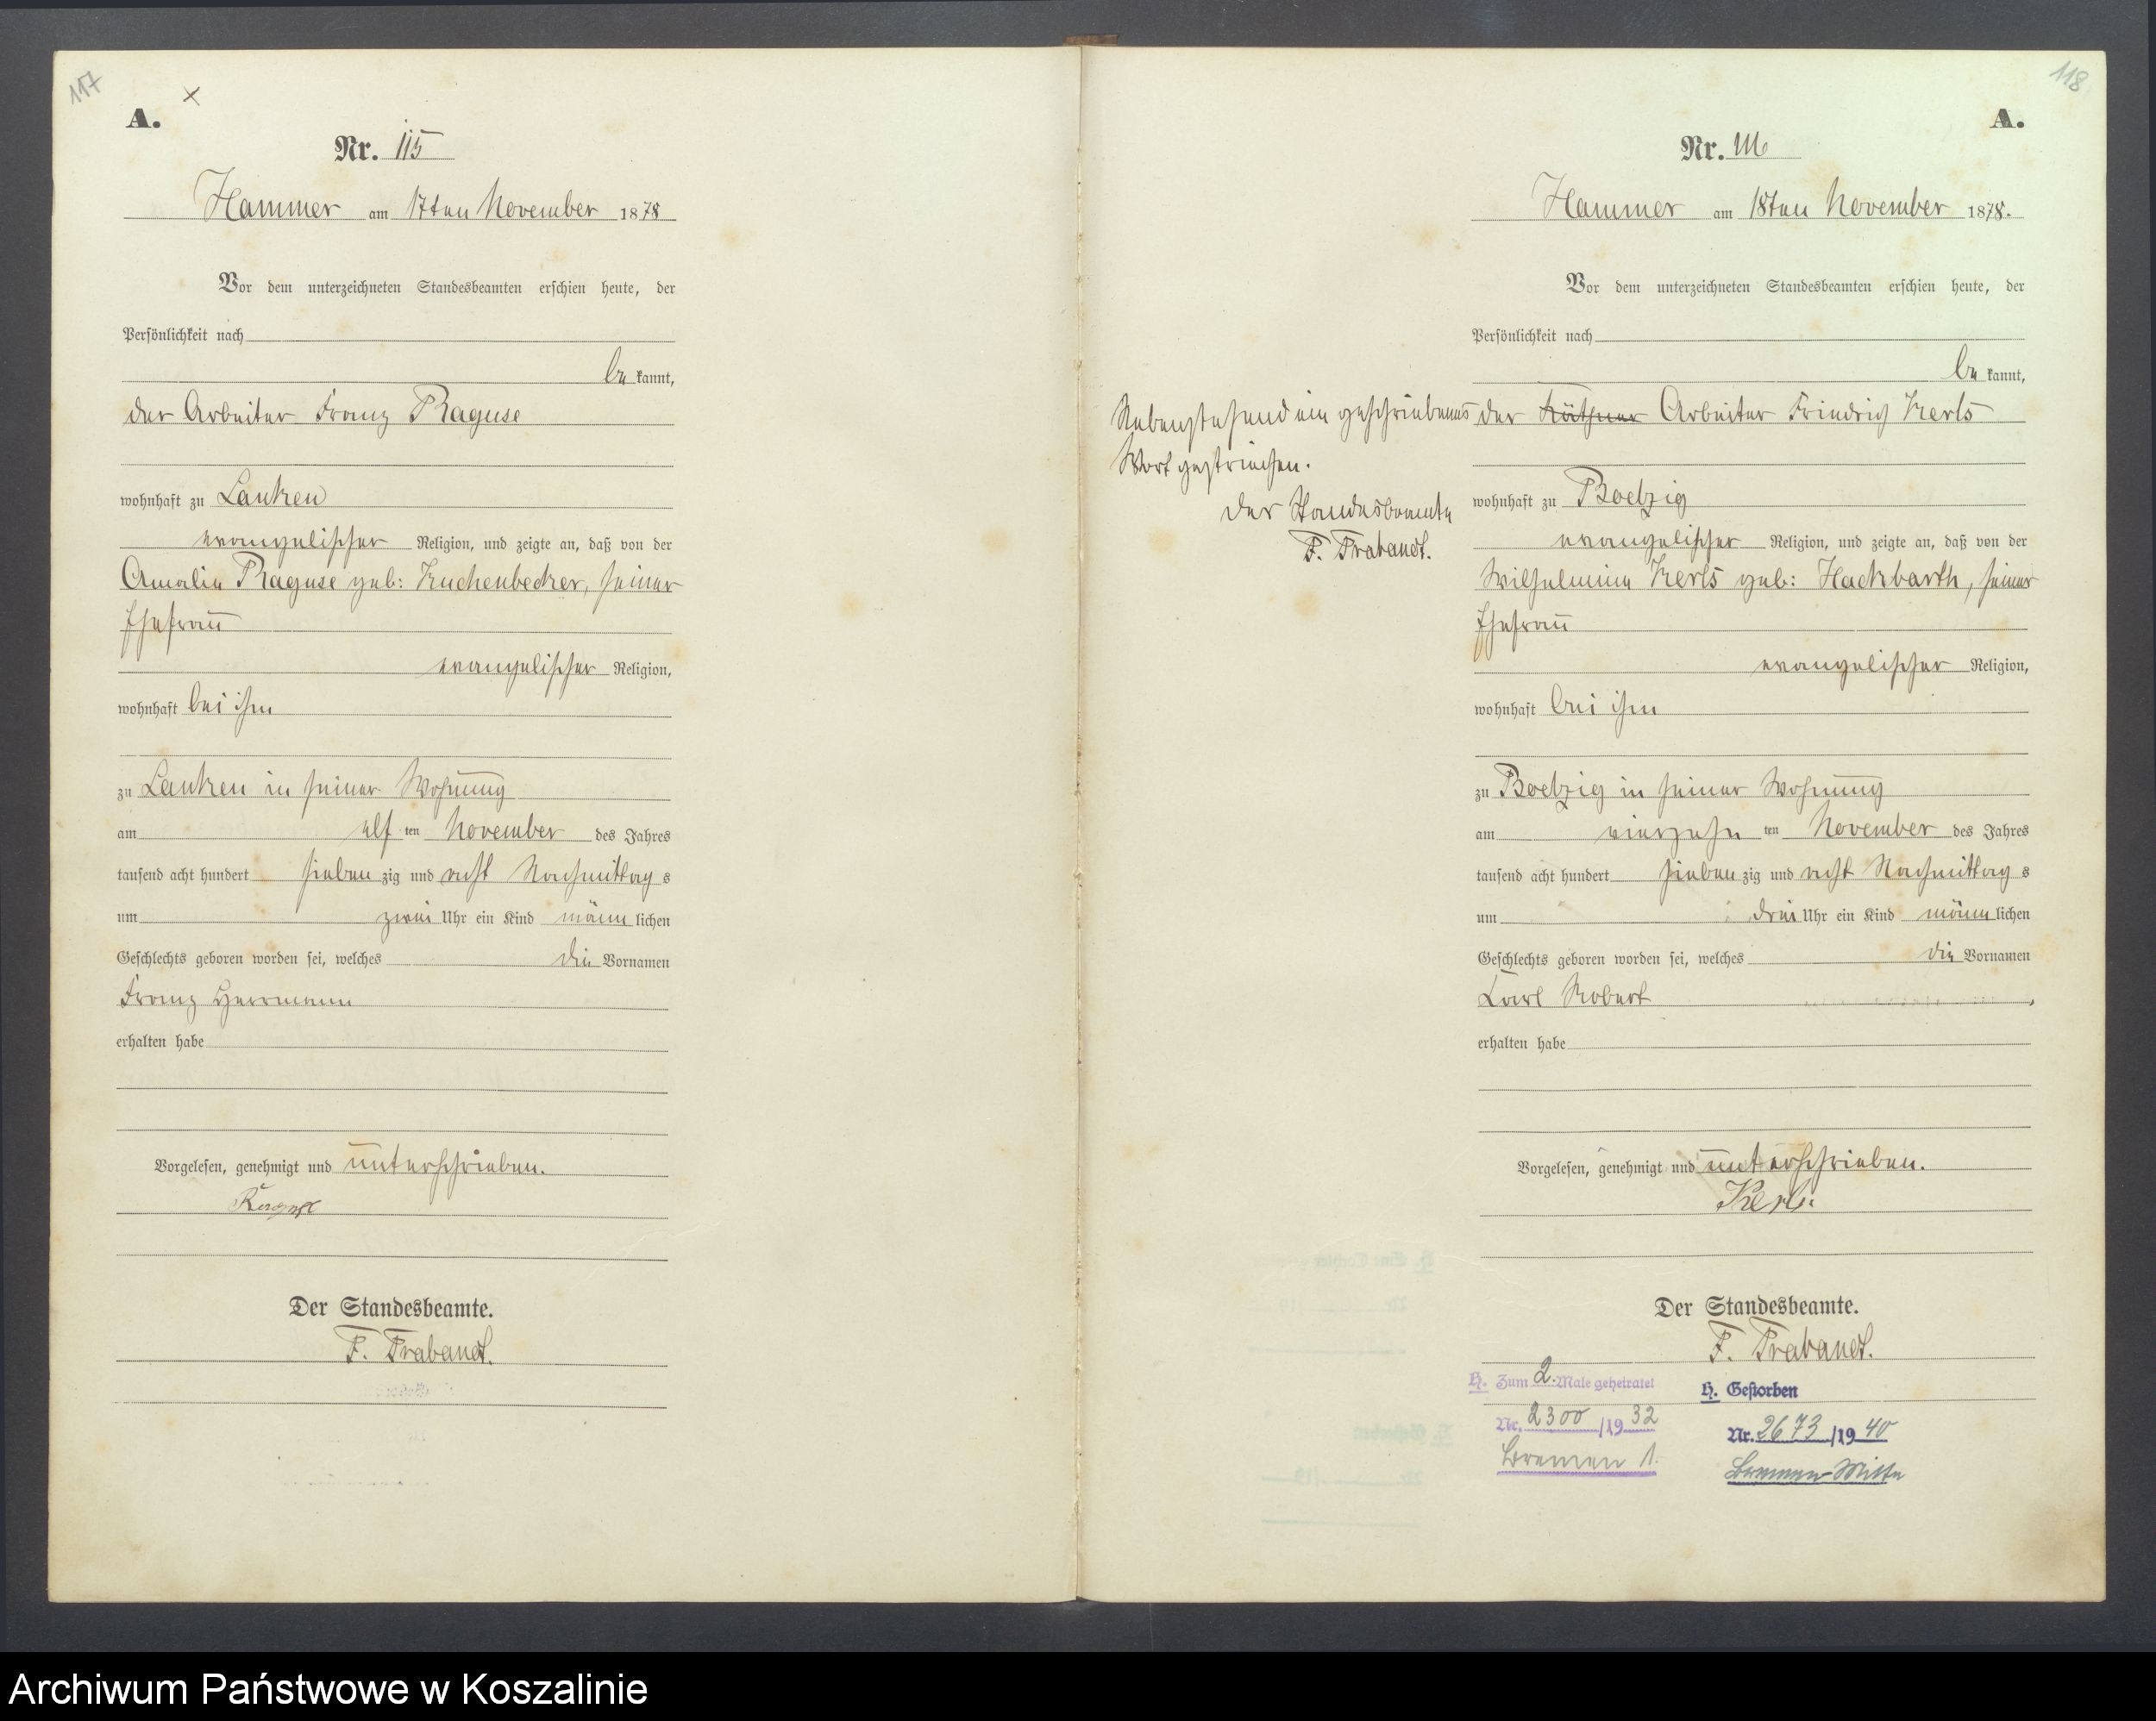 117
A.
Nr. 115
Hammer am 17ten November 1878
Vor dem unterzeichneten Standesbeamten erschien heute, der
Persönlichkeit nach
be kannt,
der Arbeiter Franz Raguse
wohnhaft zu Lanken
evangelischer Religion, und zeigte an, daß von der
Amalie Raguse geb: Kuchenbecker, seiner
Ehefrau
evangelischer Religion,
wohnhaft bei ihm
zu Lanken in seiner Wohnung
am elf ten November des Jahres
tausend acht hundert sieben zig und acht Nachmittag s
um zwei Uhr ein Kind männ lichen
Geschlechts geboren worden sei, welches die Vornamen
Franz Herrmann
erhalten habe
Vorgelesen, genehmigt und unterschrieben.
Raguse
Der Standesbeamte.
F. Trabandt.
118
A.
Nr. 116
Hammer am 18ten November 1878.
Vor dem unterzeichneten Standesbeamten erschien heute, der
Persönlichkeit nach
be kannt,
der Käthner Arbeiter Friedrich Kerls
wohnhaft zu Boelzig
evangelischer Religion, und zeigte an, daß von der
Wilhelmine Kerls geb: Hackbarth, seiner
Ehefrau
evangelischer Religion,
wohnhaft bei ihm
zu Boelzig in seiner Wohnung
am vierzehn ten November des Jahres
tausend acht hundert sieben zig und acht Nachmittag s
um drei Uhr ein Kind männ lichen
Geschlechts geboren worden sei, welches die Vornamen
Carl Robert
erhalten habe
Vorgelesen, genehmigt und unterschrieben.
Kerls
Der Standesbeamte.
F. Trabandt.
Nebenstehend ein geschriebenes
Wort gestrichen.
Der Standesbeamte
F. Trabandt.
H. Zum 2. Male geheiratet
Nr. 2300/1932
Bremen 1.
H. Gestorben
Nr. 2673/1940
Bremen-Mitte
Archiwum Państwowe w Koszalinie